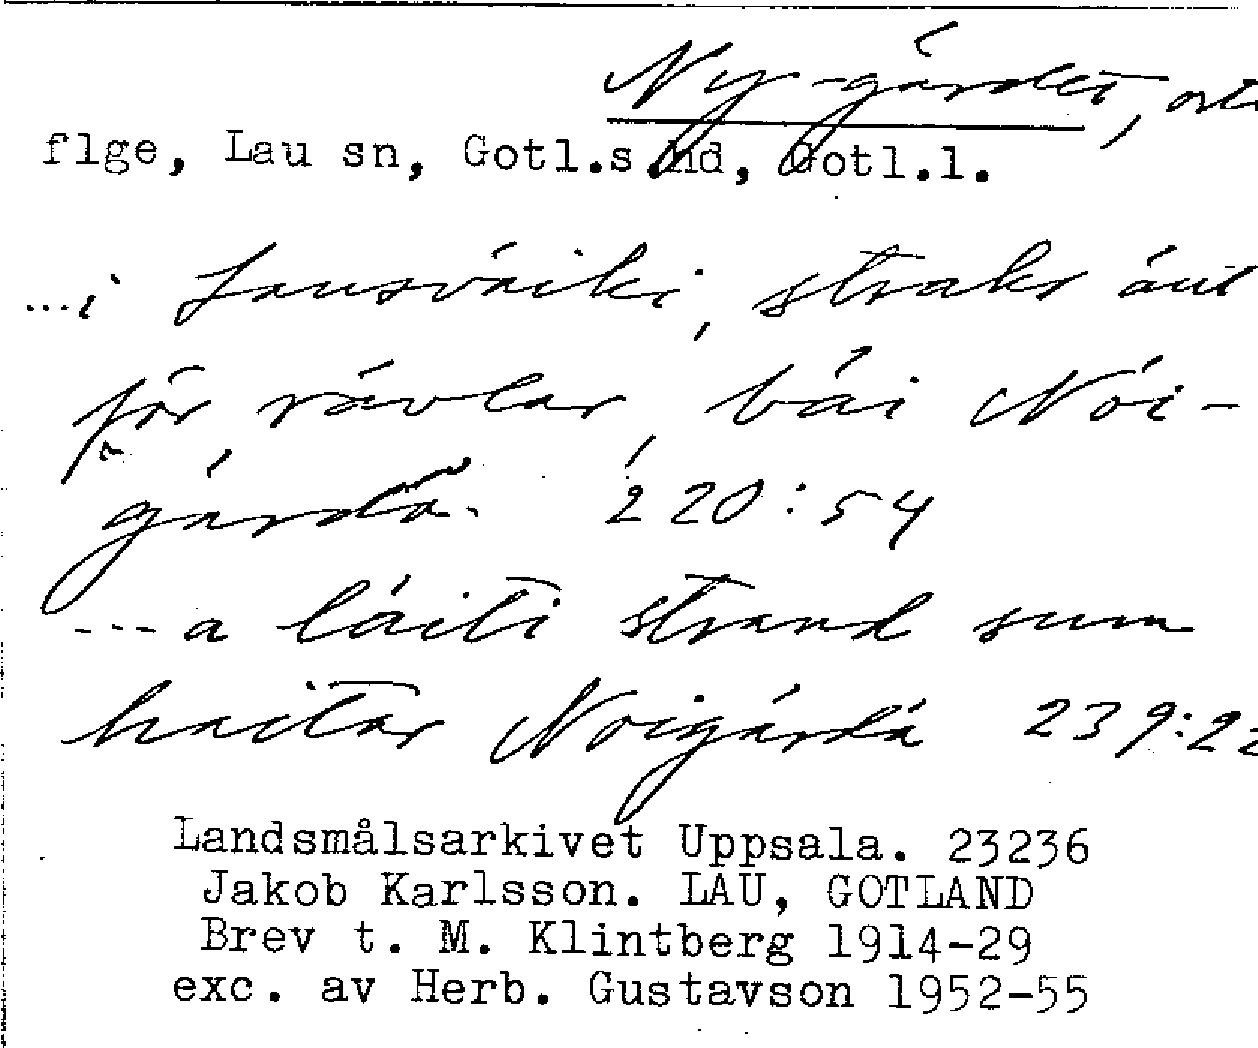 Ny-gårdet,
flge, Lau sn, Gotl.s.hd, Gotl.l.
...i Lausváiki, straks áut
för rávlar, bái Nói-
gárdä. 220:54
---a láiti strand sum
haitar Noigárdä 239:22
Landsmålsarkivet Uppsala. 23236
Jakob Karlsson. LAU, GOTLAND
Brev t. M. Klintberg 1914-29
exc. av Herb. Gustavson 1952-55